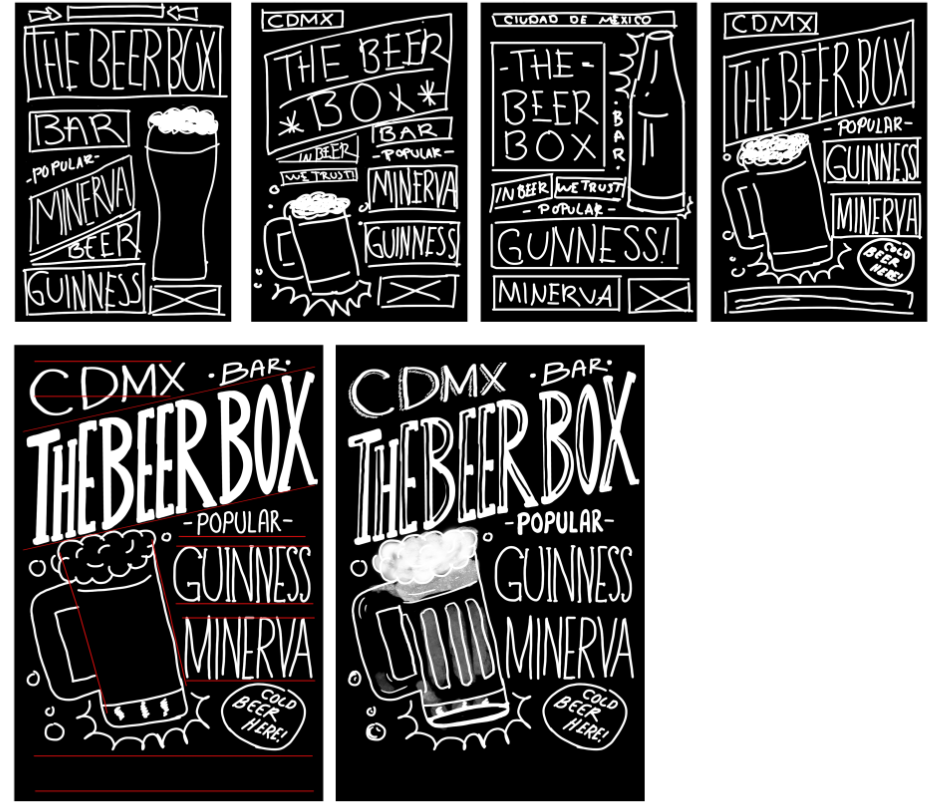 THE BEER BOX
BAR
-POPULAR-
MINERVA
BEER
GUINNESS
CDMX
THE BEER
*BOX*
BAR
-POPULAR-
IN BEER
WE TRUST!
MINERVA
GUINNESS
CIUDAD DE MEXICO
-THE-
BEER
BOX
·BAR·
IN BEER WE TRUST!
- POPULAR -
GUNNESS!
MINERVA
CDMX
THE BEER BOX
-POPULAR-
GUINNESS
MINERVA
COLD
BEER
HERE!
CDMX ·BAR·
THE BEER BOX
-POPULAR-
GUINNESS
MINERVA
COLD
BEER
HERE!
CDMX ·BAR·
THE BEER BOX
-POPULAR-
GUINNESS
MINERVA
COLD
BEER
HERE!